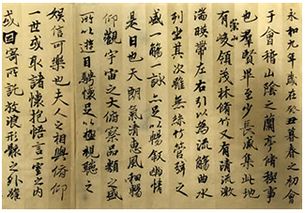 永和九年歲在癸丑暮春之初會
于會稽山陰之蘭亭脩稧事
也羣賢畢至少長咸集此地
有崇山峻領茂林脩竹又有清流激
湍暎帶左右引以為流觴曲水
列坐其次雖無絲竹管弦之
盛一觴一詠亦足以暢叙幽情
是日也天朗氣清惠風和暢
仰觀宇宙之大俯察品類之盛
所以遊目騁懷足以極視聽之
娛信可樂也夫人之相與俯仰
一世或取諸懷抱悟言一室之內
或因寄所託放浪形骸之外雖